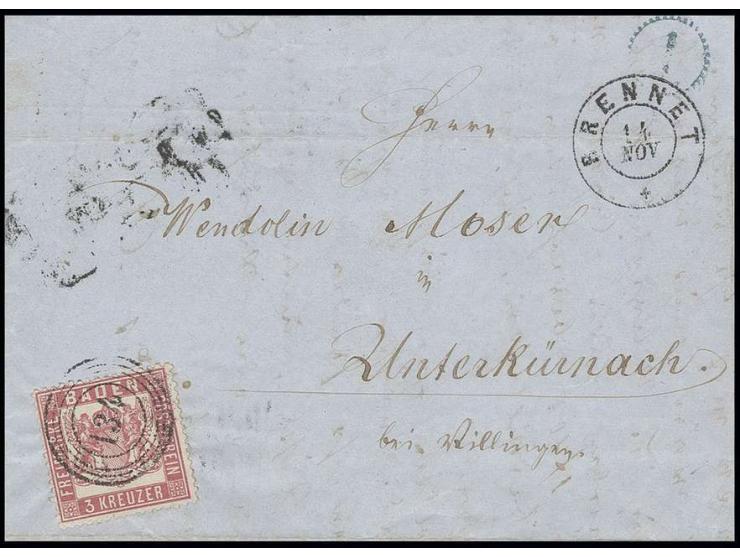 BRENNET
14
NOV
Herrn
Wendolin Moser
in
Unterkürnach.
bei Villingen.
BADEN
FREIMARKE
3 KREUZER